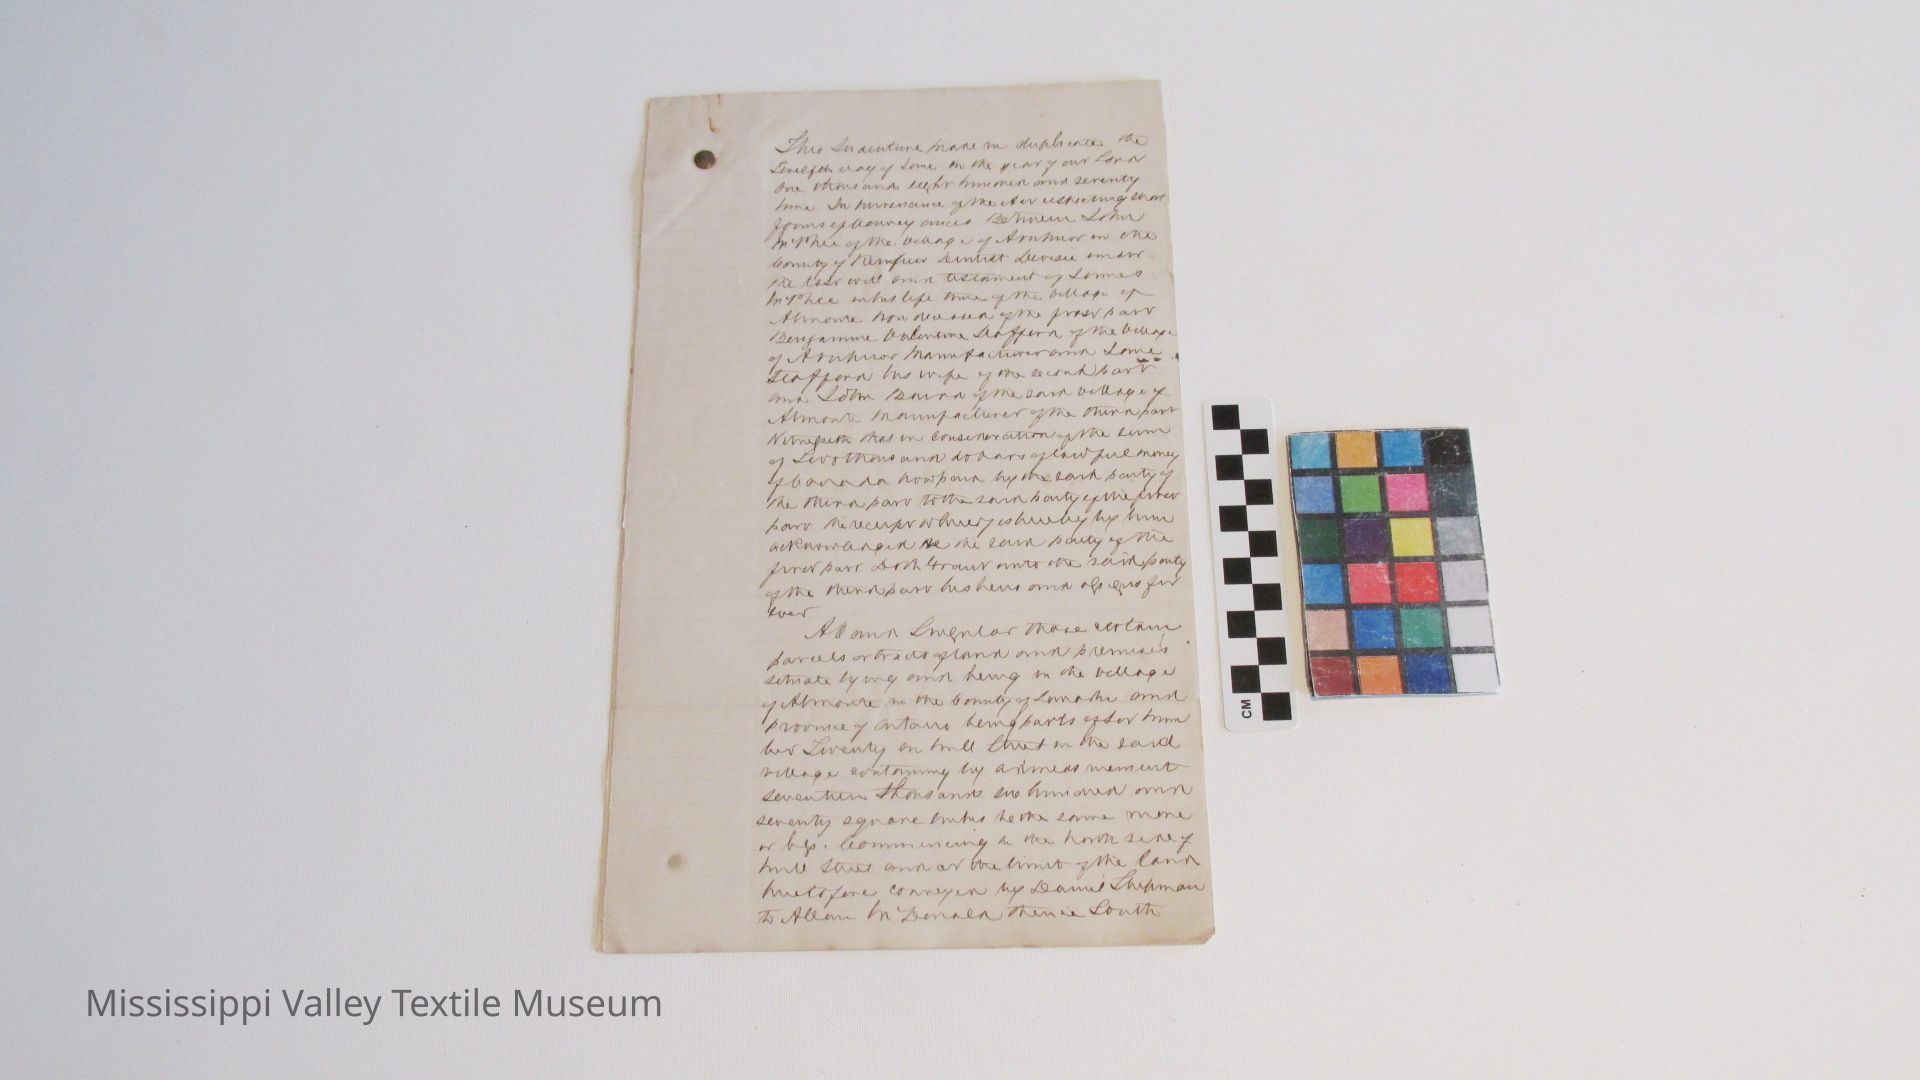 This Indenture made in duplicate the
Twelfth day of June in the year of our Lord
One thousand eight hundred and seventy
In pursuance of the Act respecting short
forms of Conveyances Between John
McPhee of the village of Arnprior in the
County of Renfrew Dentist Devisee under
the last will and testament of James
McPhee in his life time of the village of
Almonte now deceased of the first part
Benjamine Valentine Stafford of the village
of Arnprior Manufacturer and Jane
Stafford his wife of the second part
and John Baird of the said village of
Almonte Manufacturer of the third part
Witnesseth that in Consideration of the sum
of Two thousand dollars of lawful money
of Canada now paid by the said party of
the third part to the said party of the first
part the receipt whereof is hereby by him
acknowledged He the said party of the
first part Doth Grant unto the said party
of the third part his heirs and assigns for
ever
All and Singular those certain
parcels or tracts of land and premises
situate lying and being in the village
of Almonte in the County of Lanark and
province of Ontario being parts of lot num
ber Twenty on mill Street in the said
village containing by admeasurement
seventeen thousand six hundred and
seventy square links be the same more
or less. Commencing on the north side of
mill Street and at the limit of the land
heretofore conveyed by Daniel Shipman
to Allan McDonald thence South
Mississippi Valley Textile Museum
CM